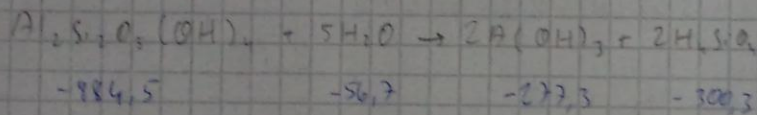 Al₂Si₂O₅(OH)₄ + 5H₂O → 2Al(OH)₃ + 2H₄SiO₄
-884,5 -56,7 -277,3 -300,3